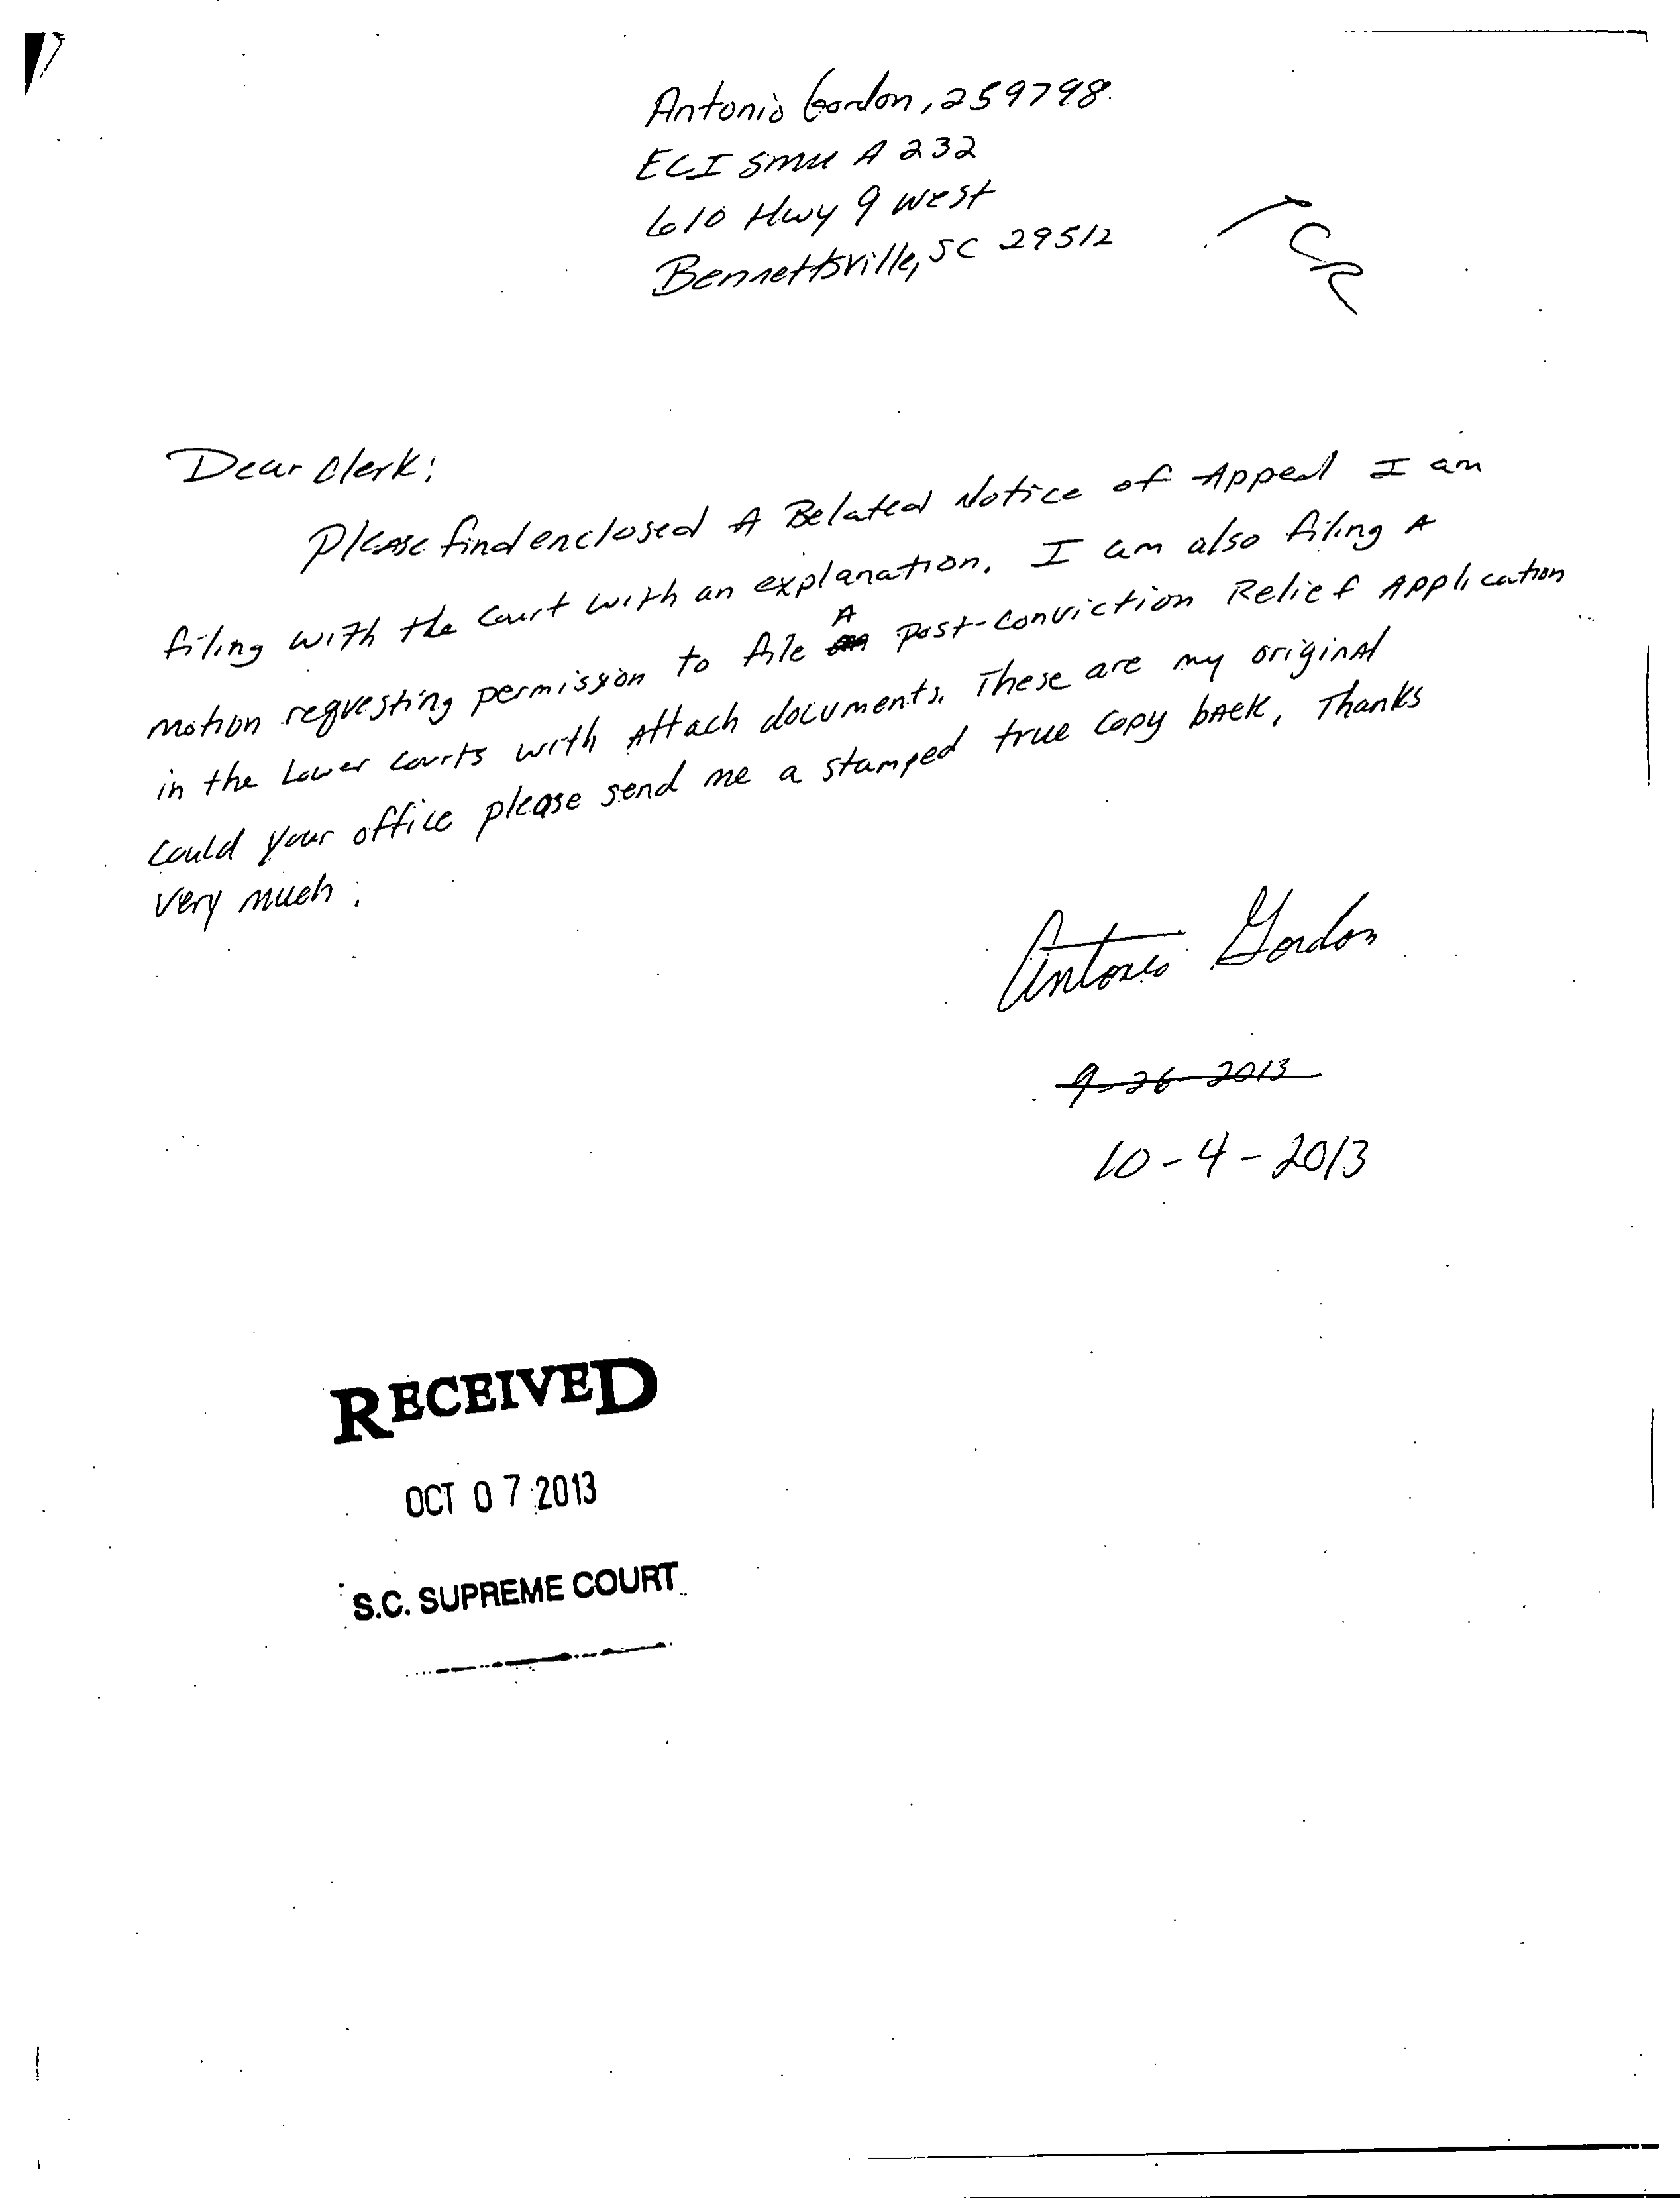 Antonio Gordon, 259798
ECI SMU A 232
610 Hwy 9 West
Bennettsville, SC 29512
CR
Dear Clerk:
Please find enclosed A Belated Notice of Appeal I am
filing with the Court with an explanation. I am also filing A
motion requesting permission to file A Post-Conviction Relief Application
in the Lower Courts with Attach documents. These are my original
Could your office please send me a stamped true copy back, Thanks
Very Much.
Antonio Gordon
9-26-2013
10-4-2013
RECEIVED
OCT 07 2013
S.C. SUPREME COURT